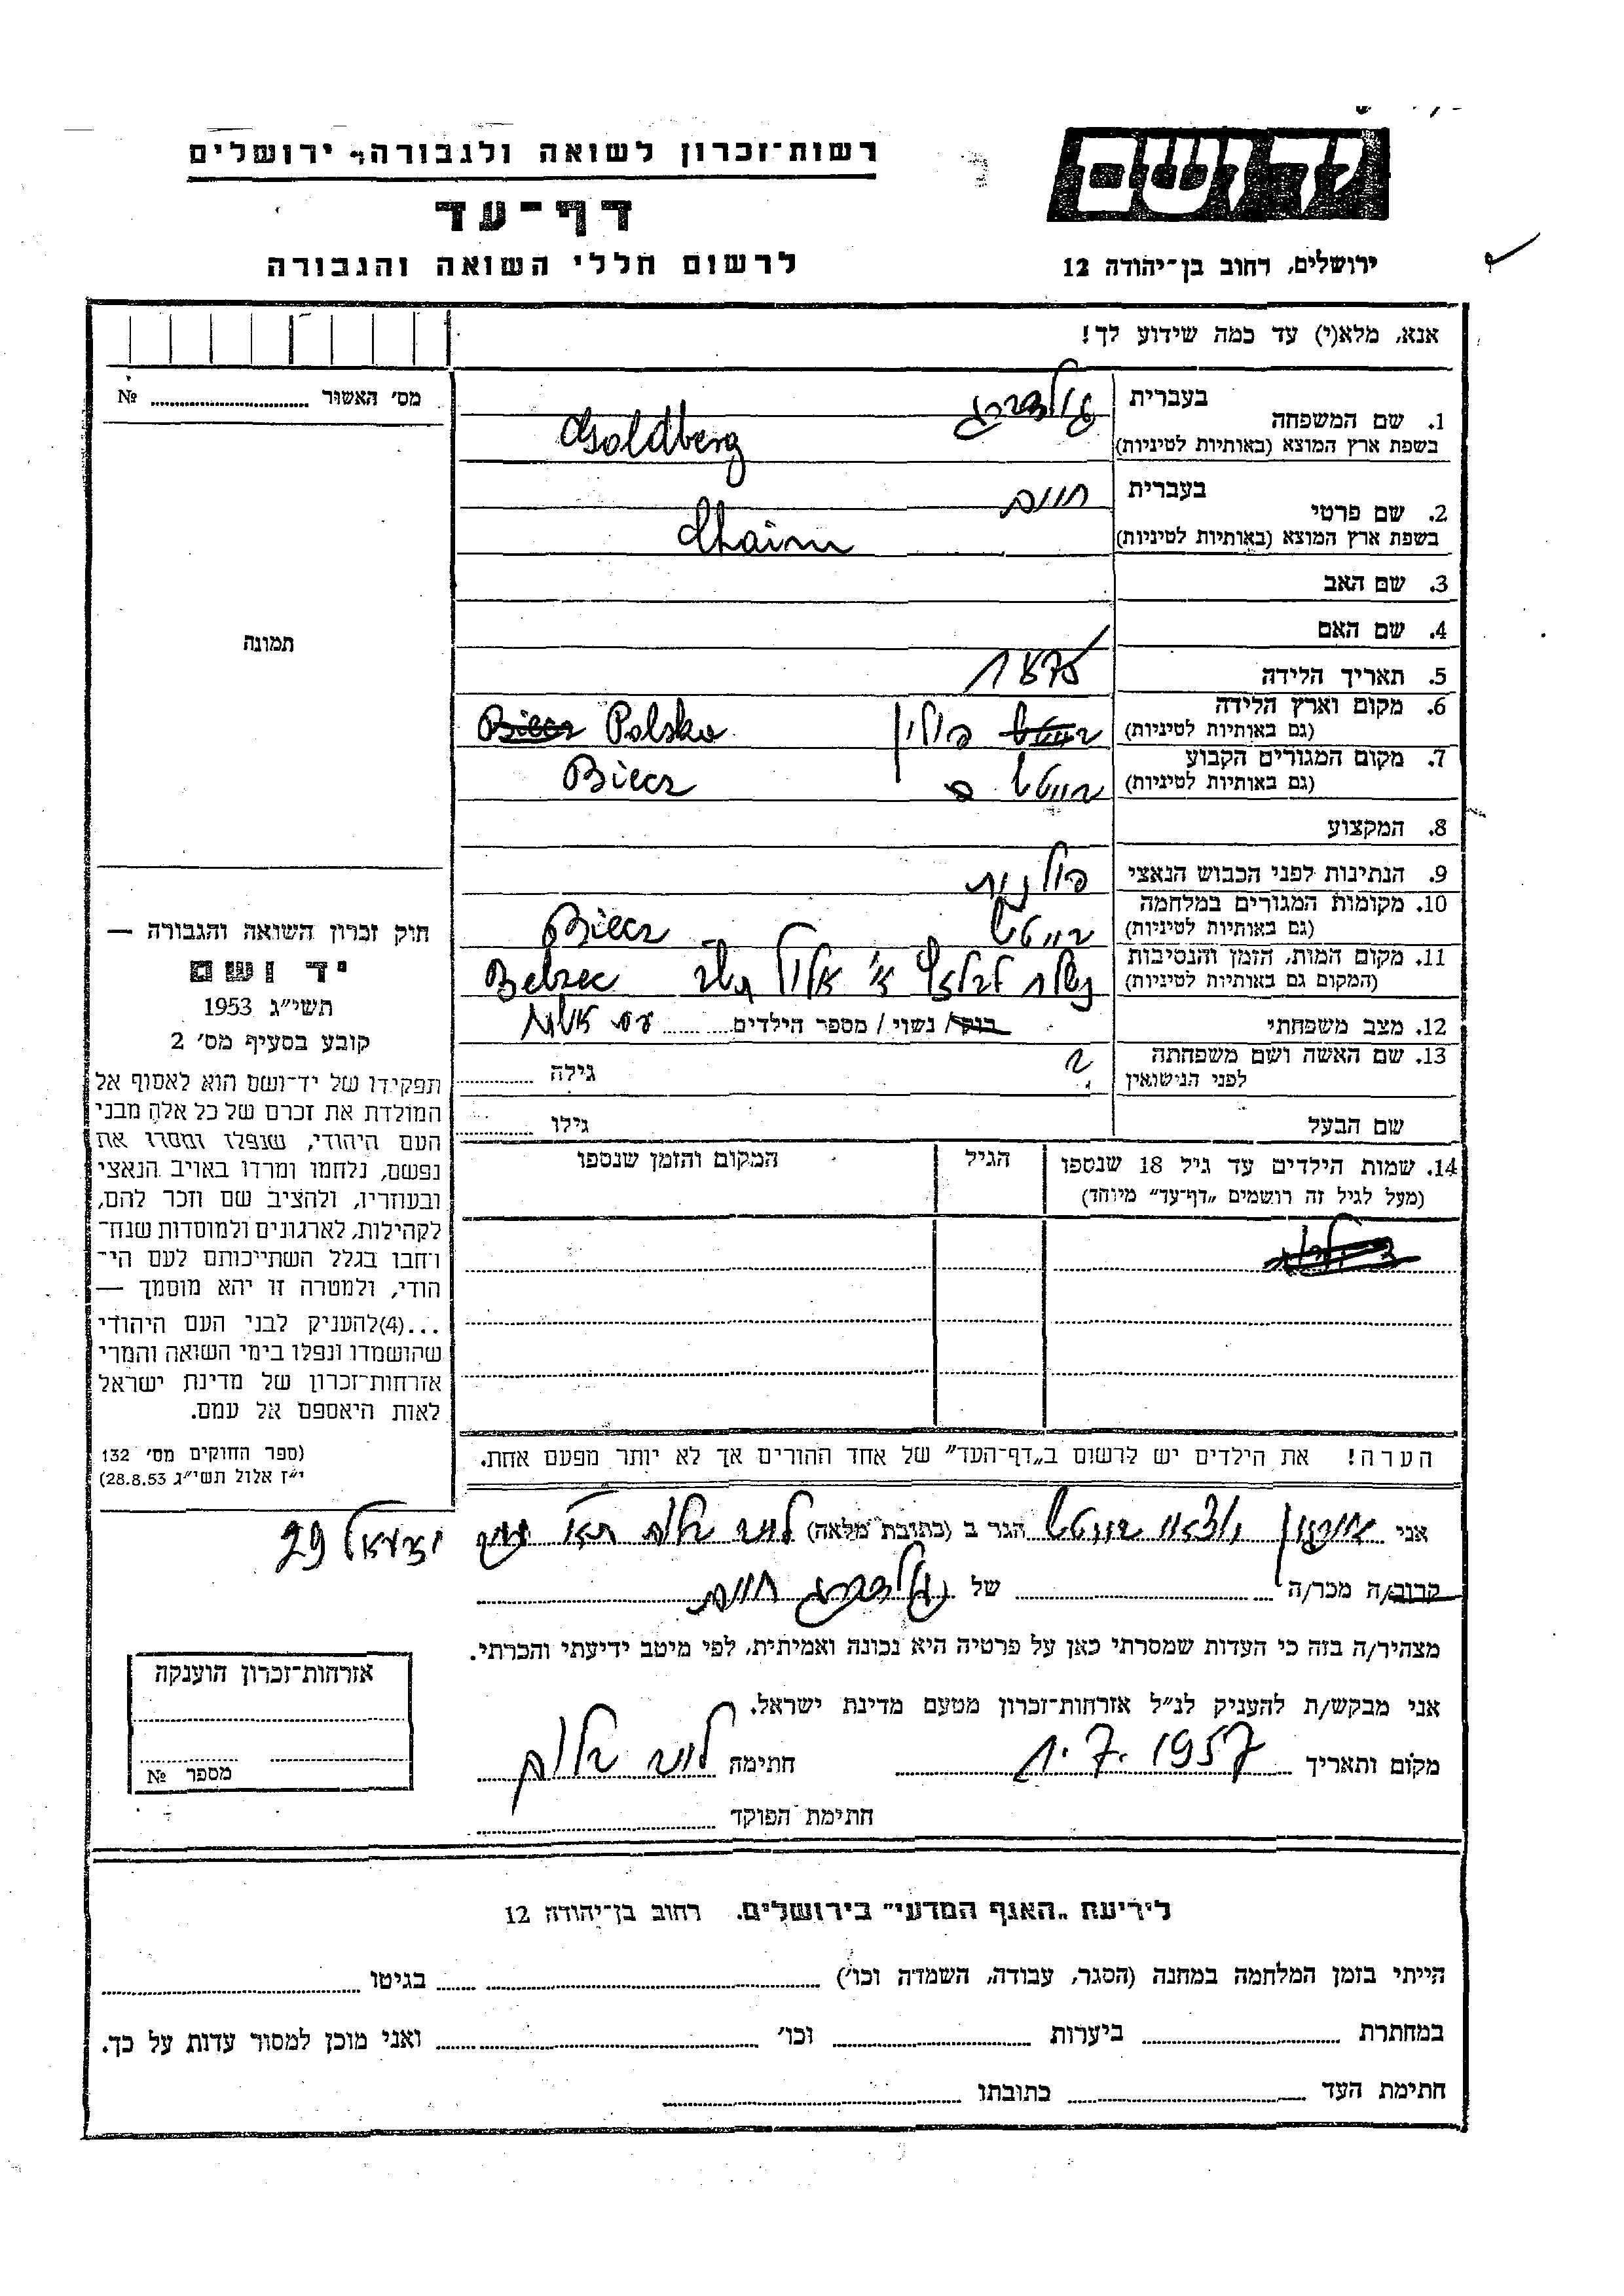 יד ושם
רשות־זכרון לשואה ולגבורה, ירושלים
דף־עד
לרשום חללי השואה והגבורה
ירושלים, רחוב בן־יהודה 12
אנא, מלא(י) עד כמה שידוע לך!
מס' האשור № ........
תמונה
1. שם המשפחה
בעברית גולדברג
בשפת ארץ המוצא (באותיות לטיניות) Goldberg
2. שם פרטי
בעברית חיים
בשפת ארץ המוצא (באותיות לטיניות) Chaim
3. שם האב
4. שם האם
5. תאריך הלידה 1875
6. מקום וארץ הלידה פולין Biecz Polska
(גם באותיות לטיניות)
7. מקום המגורים הקבוע בייטש Biecz
(גם באותיות לטיניות)
8. המקצוע
9. הנתינות לפני הכבוש הנאצי פולנית
10. מקומות המגורים במלחמה בייטש Biecz
(גם באותיות לטיניות)
11. מקום המות, הזמן והנסיבות א' אלול תש"ב Belzec
(המקום גם באותיות לטיניות)
12. מצב משפחתי רווק / נשוי / מספר הילדים ........ עם אשתו
13. שם האשה ושם משפחתה ? גילה ........
לפני הנישואין
שם הבעל גילו ........
14. שמות הילדים עד גיל 18 שנספו הגיל המקום והזמן שנספו
(מעל לגיל זה רושמים „דף־עד" מיוחד)
הערה! את הילדים יש לרשום ב„דף־העד" של אחד ההורים אך לא יותר מפעם אחת.
חוק זכרון השואה והגבורה —
יד ושם
תשי"ג 1953
קובע בסעיף מס' 2
תפקידו של יד־ושם הוא לאסוף אל
המולדת את זכרם של כל אלה מבני
העם היהודי, שנפלו ומסרו את
נפשם, נלחמו ומרדו באויב הנאצי
ובעוזריו, ולהציב שם וזכר להם,
לקהילות, לארגונים ולמוסדות שנח־
רחבו בגלל השתייכותם לעם הי־
הודי, ולמטרה זו יהא מוסמך —
...(4)להעניק לבני העם היהודי
שהושמדו ונפלו בימי השואה והמרי
אזרחות־זכרון של מדינת ישראל
לאות היאספם אל עמם.
(ספר החוקים מס' 132
י"ז אלול תשי"ג 28.8.53)
אני ארגון יוצאי בייטש הגר ב (כתובת מלאה) ........ 29
קרוב/ה מכר/ה ........ של גולדברג חיים
מצהיר/ה בזה כי העדות שמסרתי כאן על פרטיה היא נכונה ואמיתית, לפי מיטב ידיעתי והכרתי.
אני מבקש/ת להעניק לנ"ל אזרחות־זכרון מטעם מדינת ישראל.
מקום ותאריך 1.7.1957 חתימה
חתימת הפוקד ........
אזרחות־זכרון הוענקה
מספר №
לידיעת „האגף המדעי" בירושלים. רחוב בן־יהודה 12
הייתי בזמן המלחמה במחנה (הסגר, עבודה, השמדה וכו') ........ בגיטו ........
במחתרת ........ ביערות ........ וכו' ........ ואני מוכן למסור עדות על כך.
חתימת העד ........ כתובתו ........